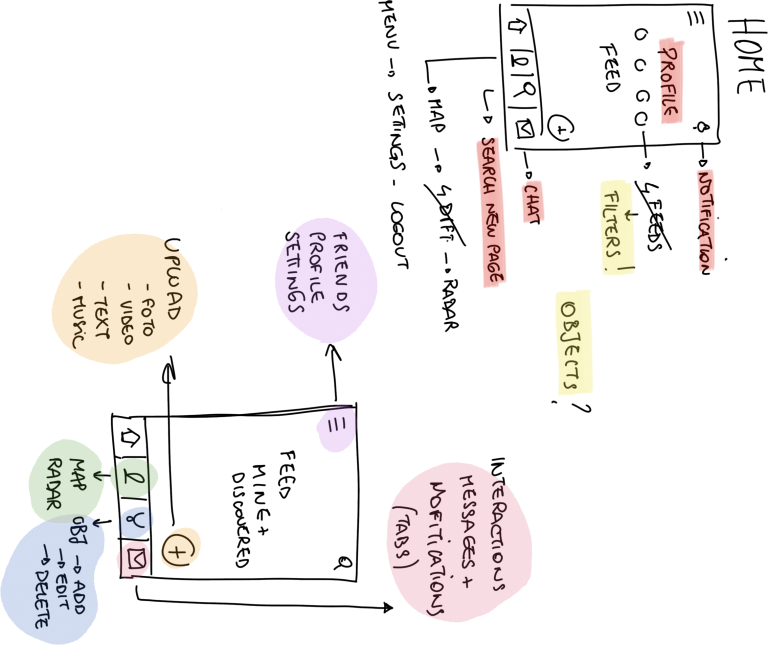 HOME
PROFILE
FEED
→ NOTIFICATION
→ 4 FEEDS
FILTERS!
→ CHAT
→ SEARCH NEW PAGE
→ MAP → 4 DIFF. → RADAR
MENU → SETTINGS - LOGOUT
OBJECTS?
FRIENDS
PROFILE
SETTINGS
UPLOAD
- FOTO
- VIDEO
- TEXT
- MUSIC
FEED
MINE +
DISCOVERED
INTERACTIONS
MESSAGES +
NOFITICATIONS
(TABS)
MAP
RADAR
OBJ → ADD
→ EDIT
→ DELETE